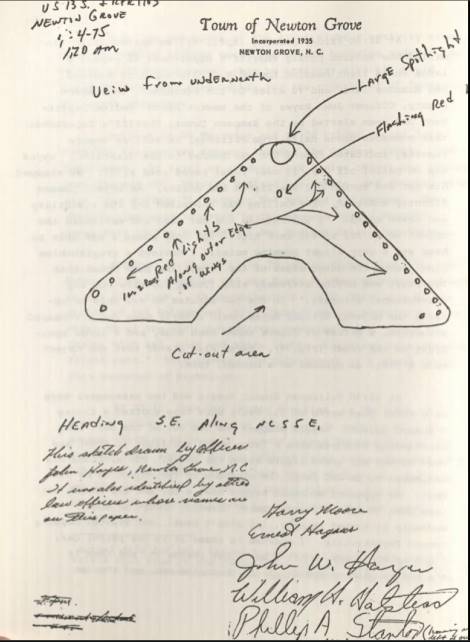 US 13 S.
NEWTON GROVE
4-75
1:20 AM
Town of Newton Grove
Incorporated 1935
NEWTON GROVE, N. C.
Veiw From UNDERNEATH
LARGE Spotlight
Flashing Red
Red Lights
Along outer Edge
of wings
Cut-out area
HEADING S.E. Along NC 55 E.
This sketch drawn by officer
John Hayes, Newton Grove, N.C
It was also sketched by other
law officers whose names are
on this paper.
Harry Moore
Ernest Hagans
John W. Hayes
William H.
Phillip A. Stanton